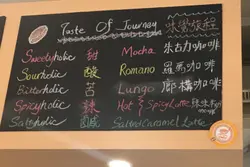 Taste Of Journey 味覺旅程
Sweetyholic 甜 Mocha 朱古力咖啡
Sourholic 酸 Romano 羅馬咖啡
Bitterholic 苦 Lungo 咖啡
Spicyholic 辣 Hot & Spicy Latte
Saltyholic 鹹 Salted Caramel Latte